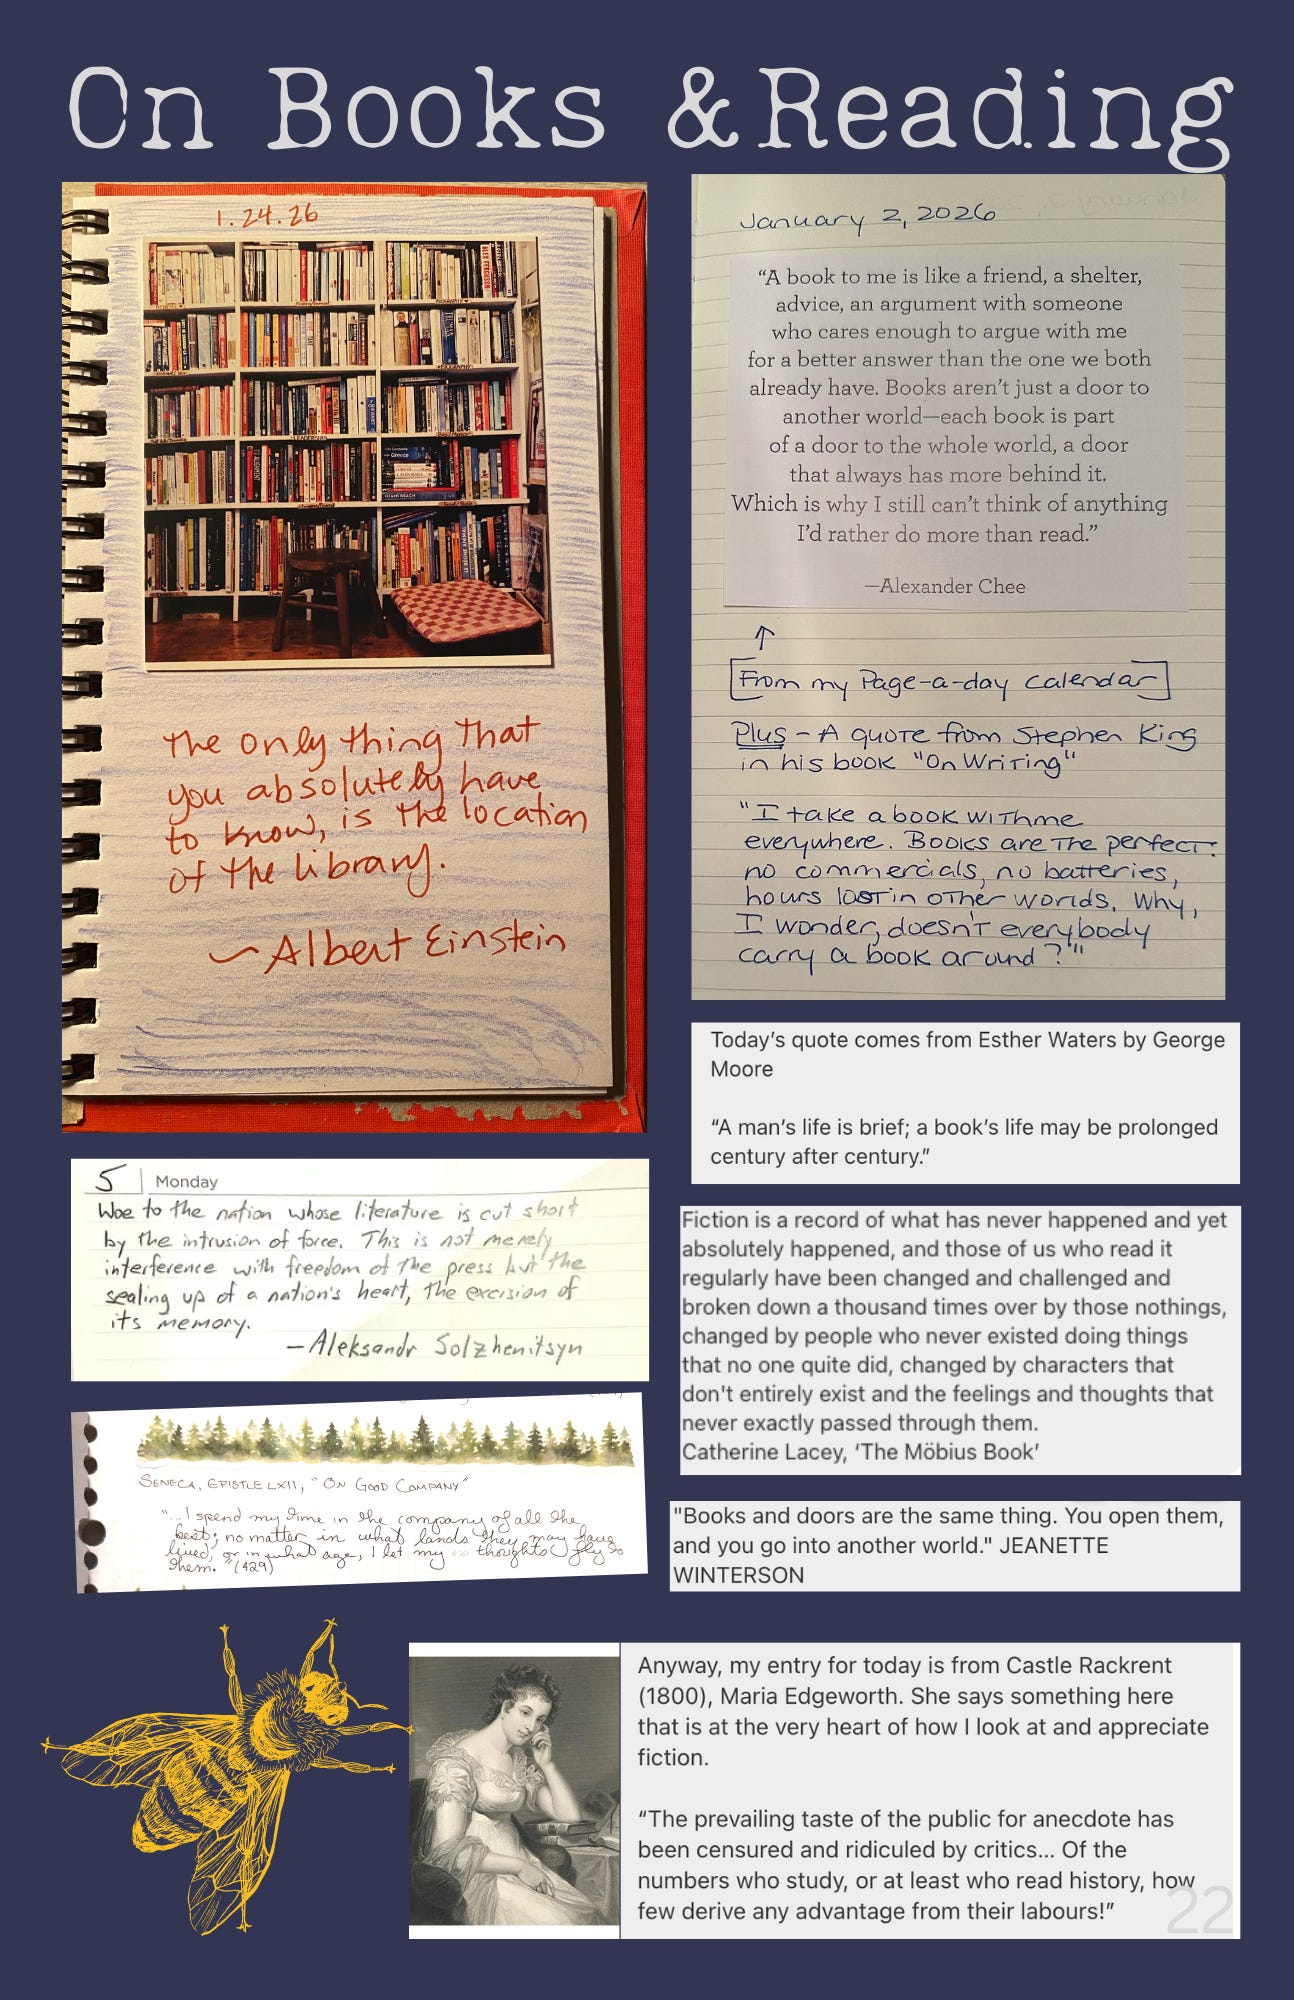 On Books & Reading
1.24.26
ALEX FERGUSON
BIOGRAPHY
The only thing that
you absolutely have
to know, is the location
of the library.
~Albert Einstein
January 2, 2026
“A book to me is like a friend, a shelter,
advice, an argument with someone
who cares enough to argue with me
for a better answer than the one we both
already have. Books aren’t just a door to
another world—each book is part
of a door to the whole world, a door
that always has more behind it.
Which is why I still can’t think of anything
I’d rather do more than read.”
—Alexander Chee
↑
[From my Page-a-day calendar]
Plus - A quote from Stephen King
in his book "On Writing"
"I take a book with me
everywhere. Books are the perfect:
no commercials, no batteries,
hours lost in other worlds. Why,
I wonder, doesn't everybody
carry a book around?"
Today’s quote comes from Esther Waters by George
Moore
“A man’s life is brief; a book’s life may be prolonged
century after century.”
5 Monday
Woe to the nation whose literature is cut short
by the intrusion of force. This is not merely
interference with freedom of the press but the
sealing up of a nation's heart, the excision of
its memory.
—Aleksandr Solzhenitsyn
Fiction is a record of what has never happened and yet
absolutely happened, and those of us who read it
regularly have been changed and challenged and
broken down a thousand times over by those nothings,
changed by people who never existed doing things
that no one quite did, changed by characters that
don't entirely exist and the feelings and thoughts that
never exactly passed through them.
Catherine Lacey, ‘The Möbius Book’
SENECA, EPISTLE LXII, "ON GOOD COMPANY"
"...I spend my time in the company of all the
best; no matter in what lands they may have
lived, or in what age, I let my thoughts fly to
them." (429)
"Books and doors are the same thing. You open them,
and you go into another world." JEANETTE
WINTERSON
Anyway, my entry for today is from Castle Rackrent
(1800), Maria Edgeworth. She says something here
that is at the very heart of how I look at and appreciate
fiction.
“The prevailing taste of the public for anecdote has
been censured and ridiculed by critics... Of the
numbers who study, or at least who read history, how
few derive any advantage from their labours!”
22